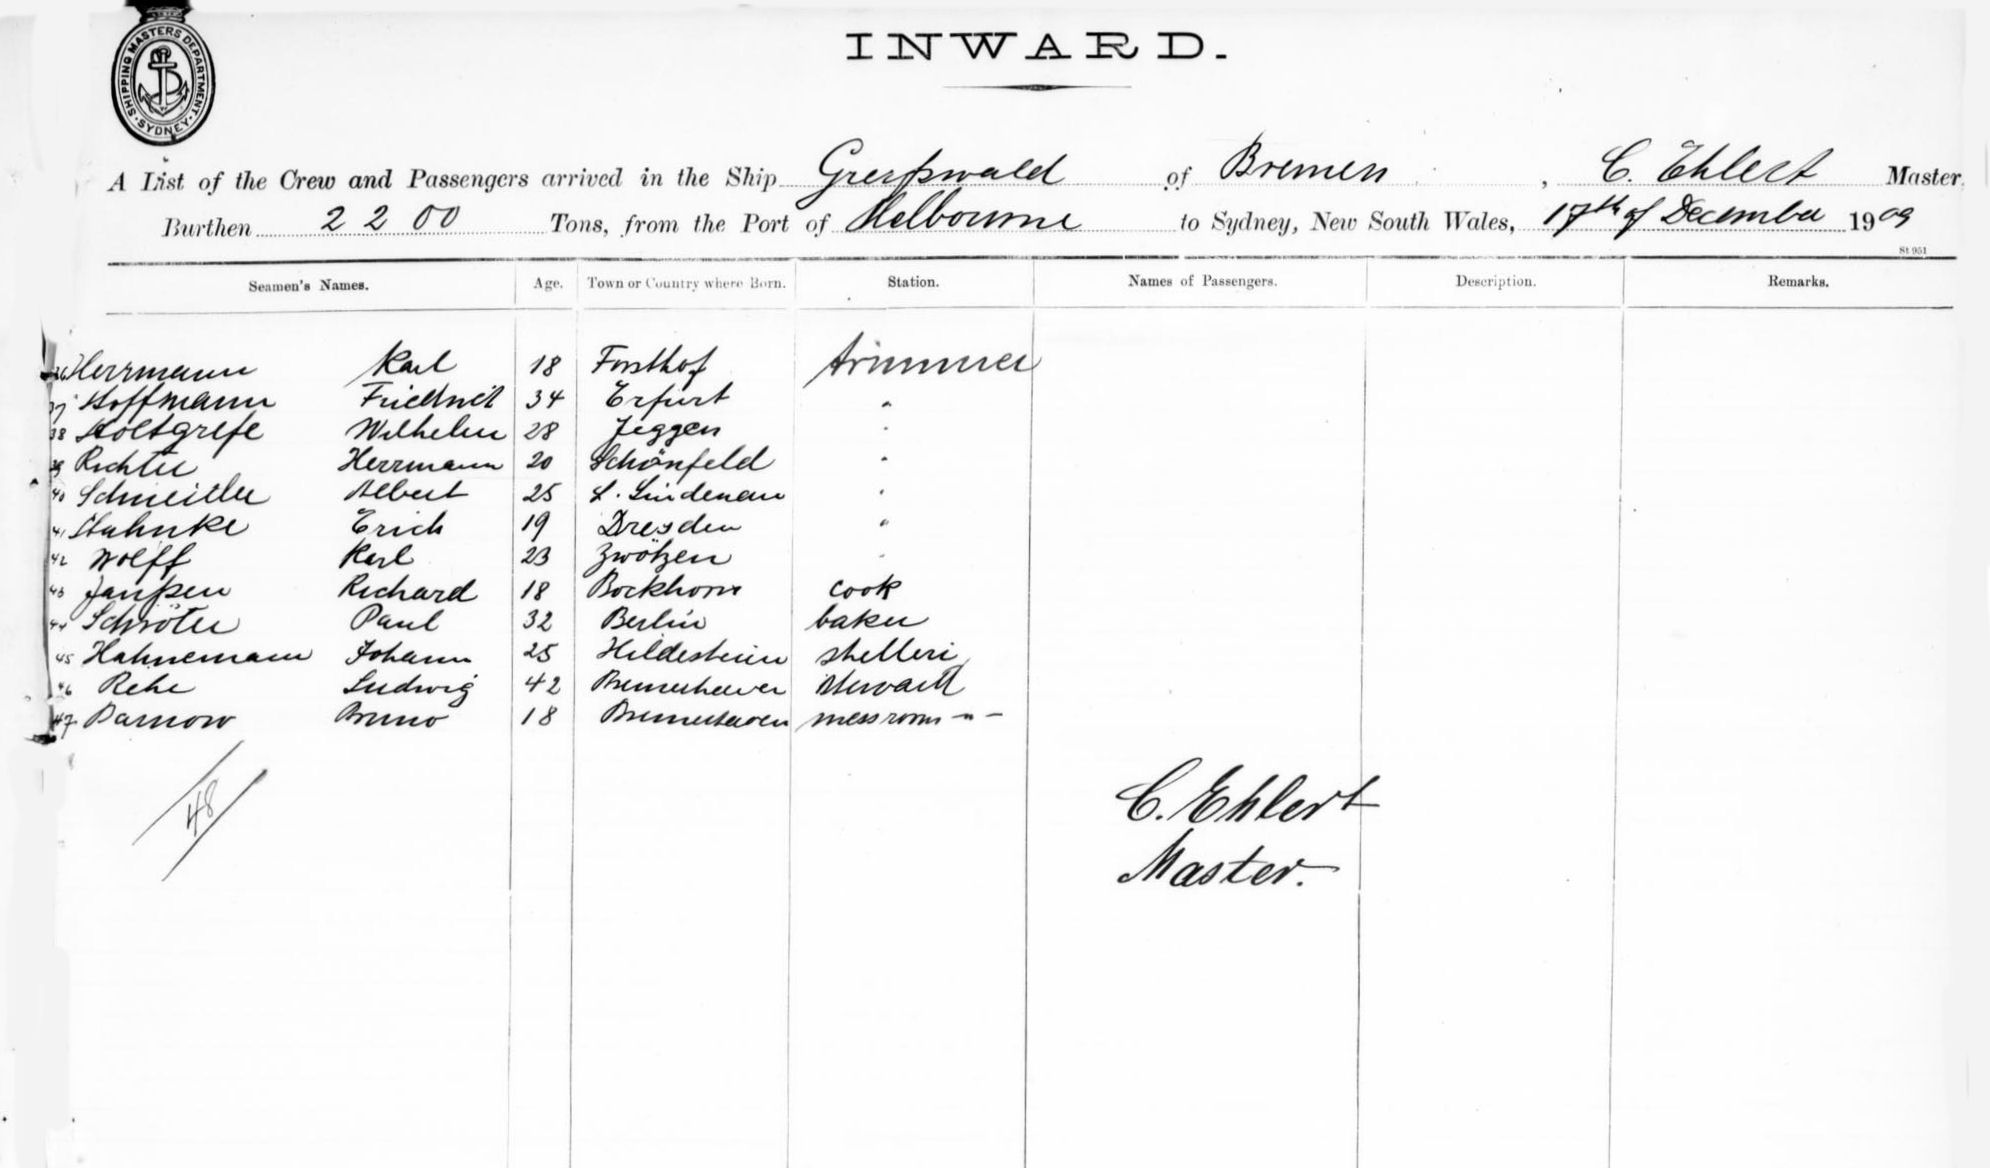 SHIPPING MASTERS DEPARTMENT. SYDNEY.
INWARD.
A List of the Crew and Passengers arrived in the Ship Greifswald of Bremen, C. Ehlert Master,
Burthen 2200 Tons, from the Port of Melbourne to Sydney, New South Wales, 17th of December 1909
St 951
Seamen's Names. Age. Town or Country where Born. Station. Names of Passengers. Description. Remarks.
36 Herrmann Karl 18 Forsthof trimmer
37 Hoffmann Friedrich 34 Erfurt "
38 Holtgrefe Wilhelm 28 Jeggen "
39 Richter Herrmann 20 Schönfeld "
40 Albert 25 L. Lindenau "
41 Stahnke Erich 19 Dresden "
42 Wolff Karl 23 Zwötzen "
43 Janßen Richard 18 Bockhorn cook
44 Schröter Paul 32 Berlin baker
45 Hahnemann Johann 25 Hildesheim
46 Rehe Ludwig 42 Bremerhaven steward
47 Parnow Bruno 18 Bremerhaven messroom - " -
48
C. Ehlert
Master.